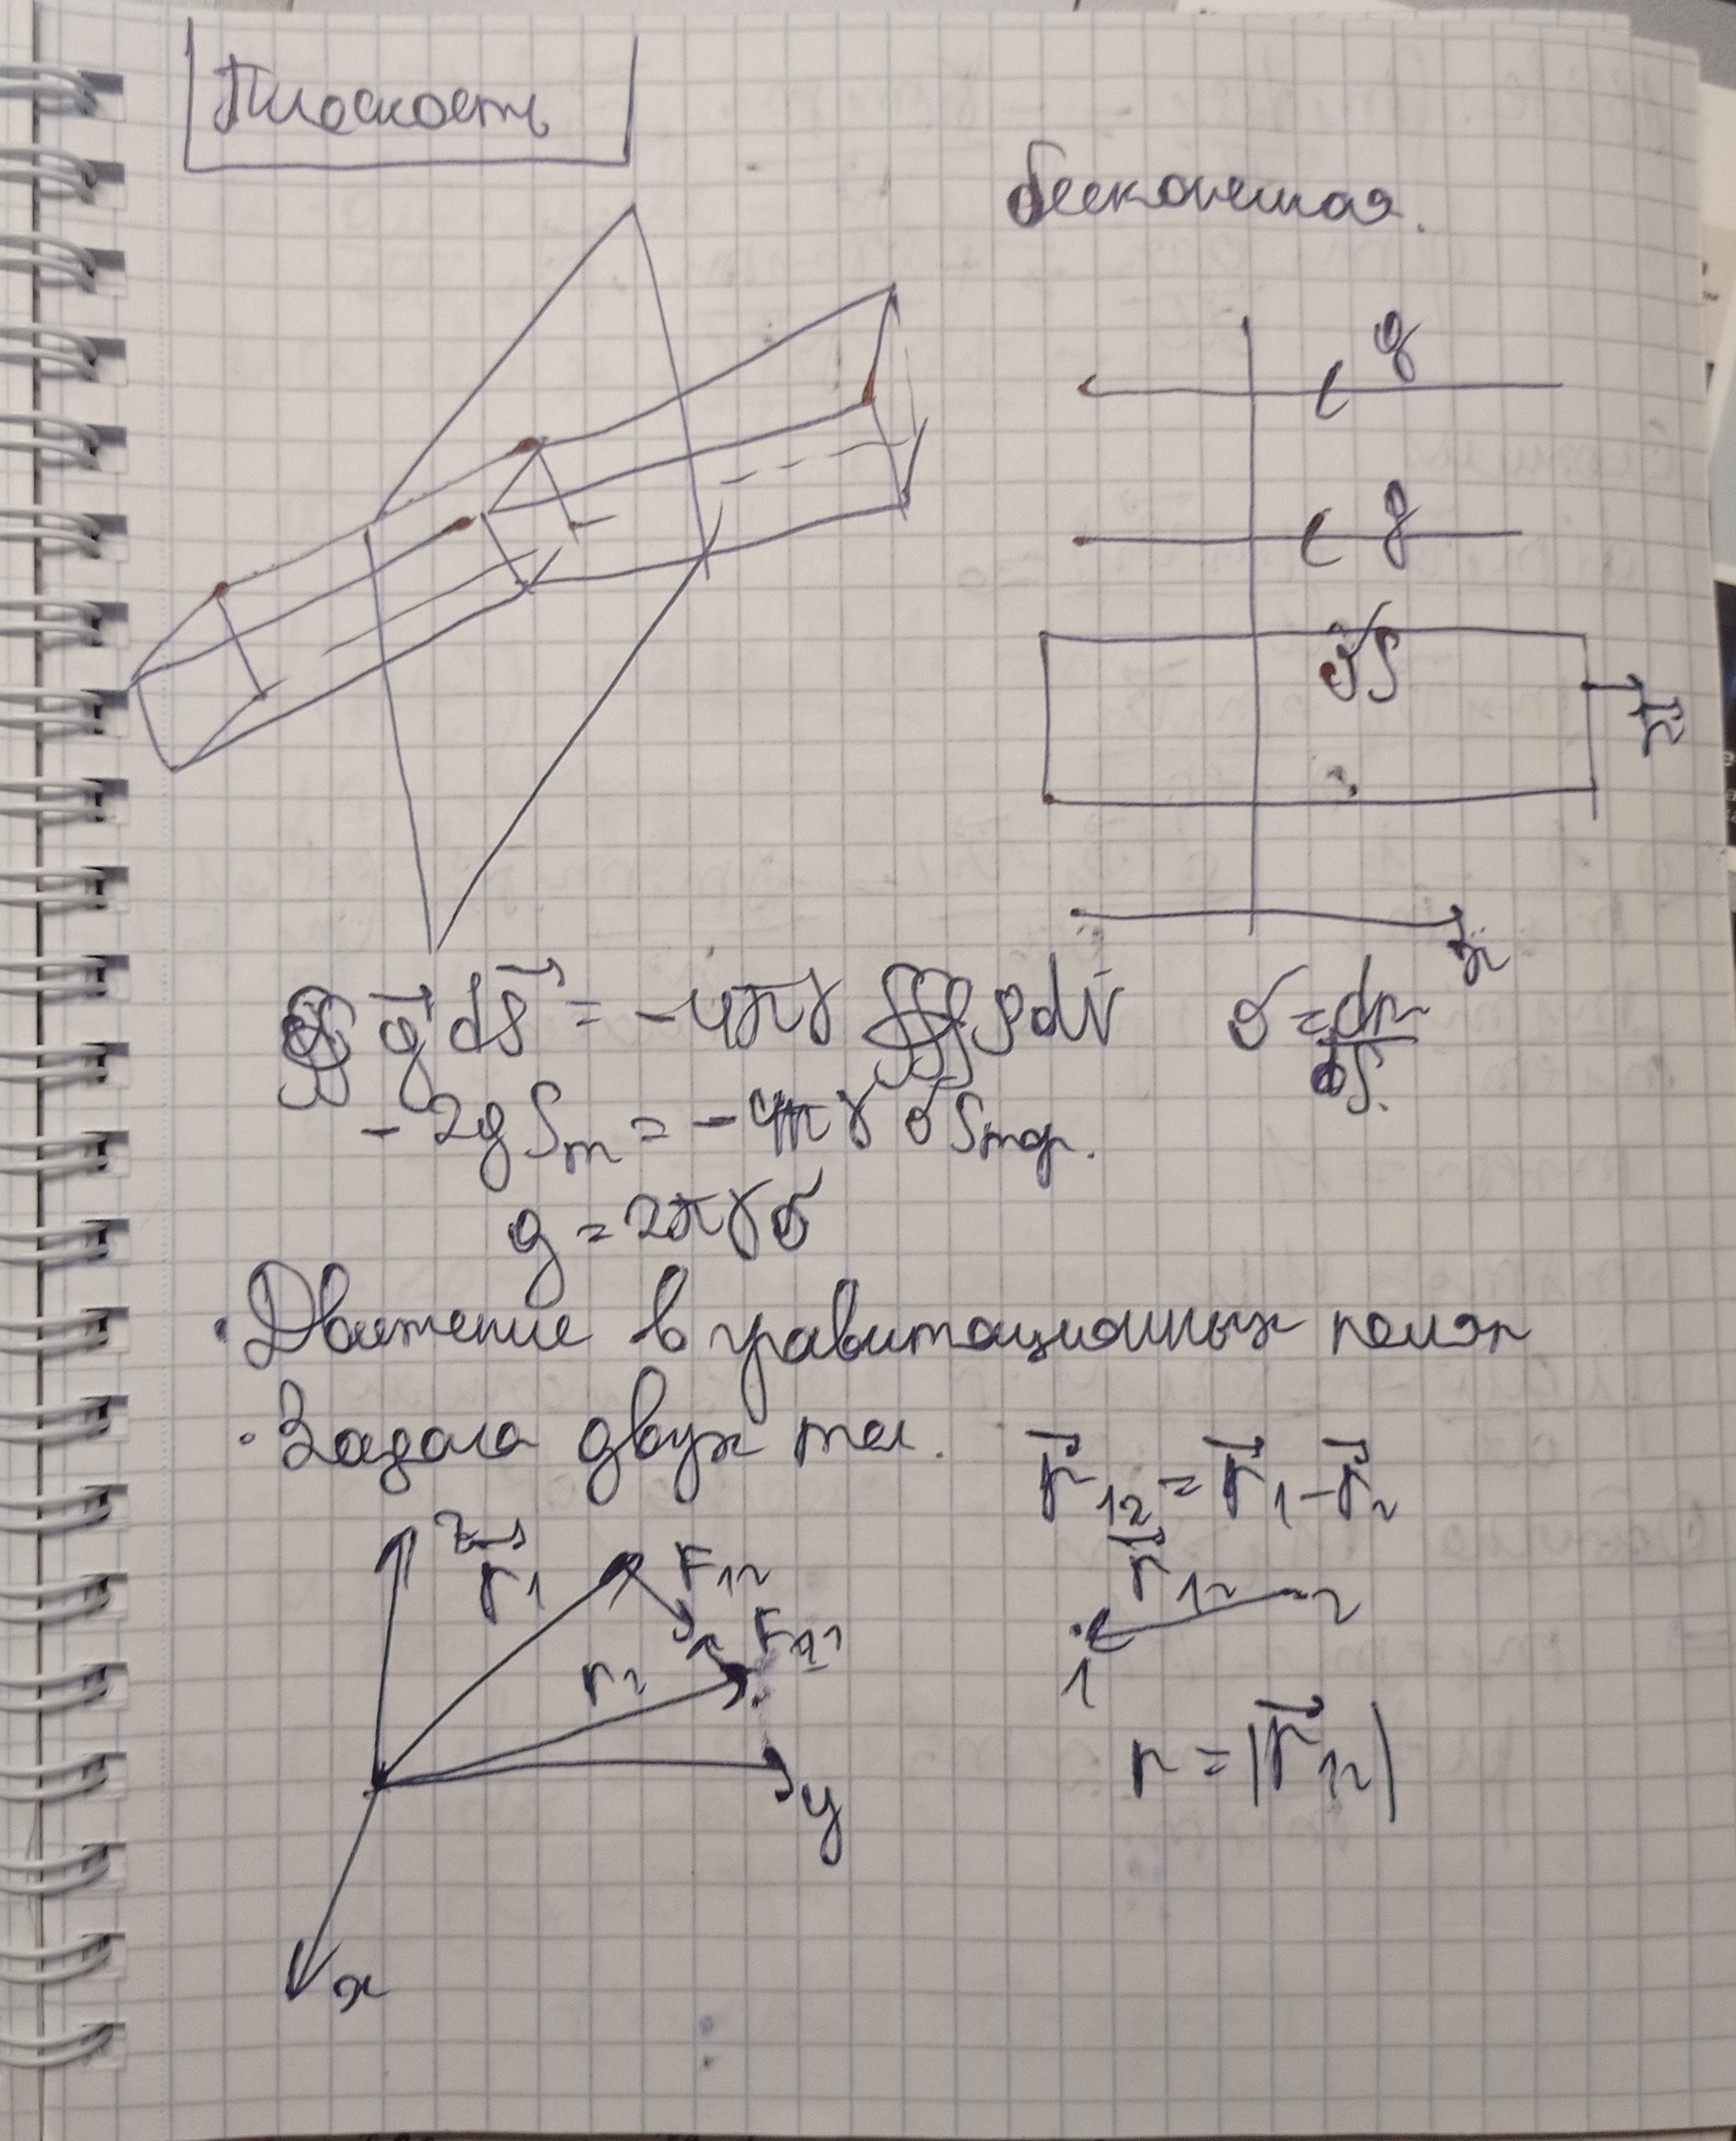 Плоскость
бесконечная.
g
g
S
n
x
∯ g⃗ dS⃗ = -4πγ ∭ ρ dV
σ = dm/dS.
-2gSₘ = -4πγ σ Sтор.
g = 2πγσ
· Движение в гравитационных полях
· Задача двух тел.
r⃗₁₂ = r⃗₁ - r⃗₂
z
r⃗₁
F₁₂
F₂₁
r₂
r⃗₁₂
2
1
r = |r⃗₁₂|
y
x